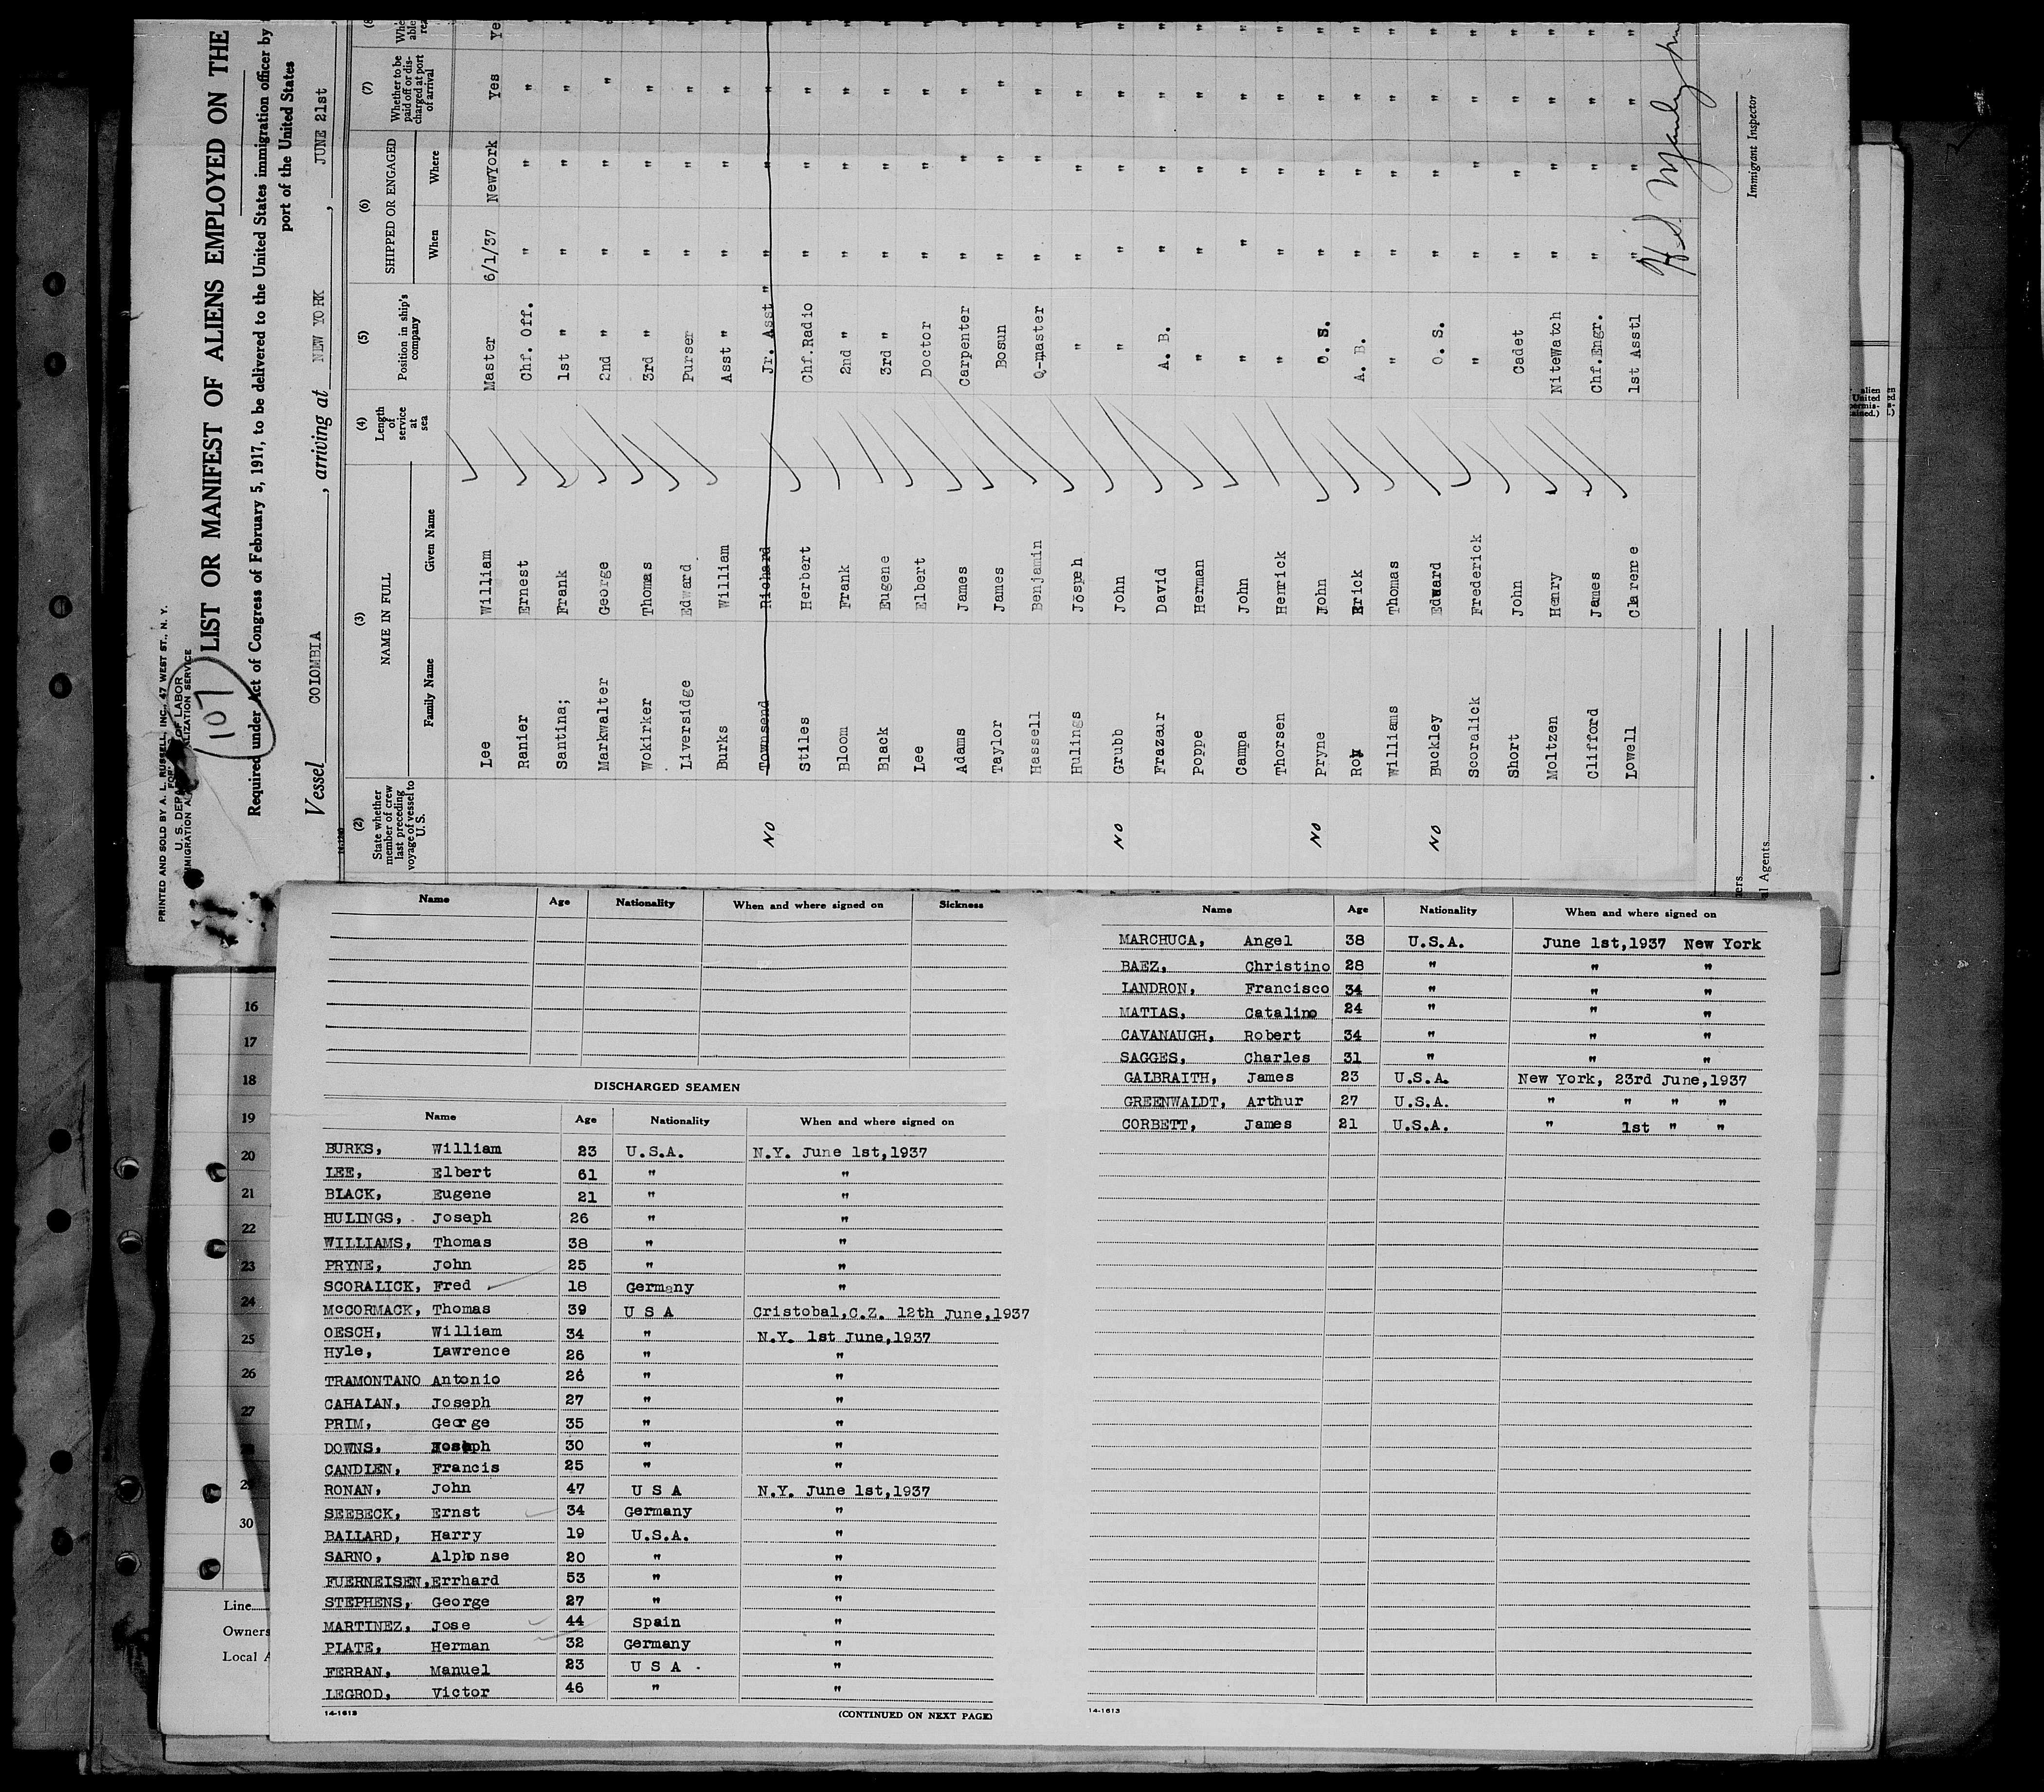 PRINTED AND SOLD BY A. L. RUSSELL, INC., 47 WEST ST., N. Y.
U. S. DEPA OF LABOR
IMMIGRATION A ALIZATION SERVICE
107
LIST OR MANIFEST OF ALIENS EMPLOYED ON THE
Required under Act of Congress of February 5, 1917, to be delivered to the United States immigration officer by
port of the United States
Vessel COLOMBIA , arriving at NEW YORK , JUNE 21st
(2) State whether member of crew last preceding voyage of vessel to U.S.
(3) NAME IN FULL Family Name Given Name
(4) Length of service at sea
(5) Position in ship's company
(6) SHIPPED OR ENGAGED When Where
(7) Whether to be paid off or discharged at port of arrival
Lee William Master 6/1/37 NewYork Yes Ye
Ranier Ernest Chf. Off. " " " "
Santina; Frank 1st " " " " "
Markwalter George 2nd " " " " "
Wokirker Thomas 3rd " " " " "
Liversidge Edward Purser " " " "
Burks William Asst " " " " "
NO Townsend Richard Jr. Asst " " " " "
Stiles Herbert Chf.Radio " " " "
Bloom Frank 2nd " " " " "
Black Eugene 3rd " " " " "
Lee Elbert Doctor " " " "
Adams James Carpenter " " " "
Taylor James Bosun " " " "
Hassell Benjamin Q-master " " " "
Hulings Joseph " " " " "
NO Grubb John " " " " "
Frazaur David A. B. " " " "
Poppe Herman " " " " "
Campa John " " " " "
Thorsen Henrick " " " " "
NO Pryne John O. S. " " " "
Roy Erick A. B. " " " "
Williams Thomas " " " " "
NO Buckley Edward O. S. " " " "
Scoralick Frederick " " " " "
Short John Cadet " " " "
Moltzen Henry NiteWatch " " " "
Clifford James Chf.Engr. " " " "
Lowell Clarence 1st Asstl " " " "
Immigrant Inspector
16
17
18
19
20
21
22
23
24
25
26
27
29
30
Line
Owners
Local A
Name Age Nationality When and where signed on Sickness
DISCHARGED SEAMEN
Name Age Nationality When and where signed on
BURKS, William 23 U.S.A. N.Y. June 1st,1937
LEE, Elbert 61 " "
BLACK, Eugene 21 " "
HULINGS, Joseph 26 " "
WILLIAMS, Thomas 38 " "
PRYNE, John 25 " "
SCORALICK, Fred 18 Germany "
McCORMACK, Thomas 39 U S A Cristobal,C.Z. 12th June,1937
OESCH, William 34 " N.Y. 1st June,1937
Hyle, Lawrence 26 " "
TRAMONTANO Antonio 26 " "
CAHALAN, Joseph 27 " "
PRIM, George 35 " "
DOWNS, Joseph 30 " "
CANDLEN, Francis 25 " "
RONAN, John 47 U S A N.Y. June 1st,1937
SEEBECK, Ernst 34 Germany "
BALLARD, Harry 19 U.S.A. "
SARNO, Alphonse 20 " "
FUERNEISEN, Errhard 53 " "
STEPHENS, George 27 " "
MARTINEZ, Jose 44 Spain "
PLATE, Herman 32 Germany "
FERRAN, Manuel 23 U S A "
LEGROD, Victor 46 " "
14-1613 (CONTINUED ON NEXT PAGE)
Name Age Nationality When and where signed on
MARCHUCA, Angel 38 U.S.A. June 1st,1937 New York
BAEZ, Christino 28 " " "
LANDRON, Francisco 34 " " "
MATIAS, Catalino 24 " " "
CAVANAUGH, Robert 34 " " "
SAGGES, Charles 31 " " "
GALBRAITH, James 23 U.S.A. New York, 23rd June,1937
GREENWALDT, Arthur 27 U.S.A. " " " "
CORBETT, James 21 U.S.A. " 1st " "
14-1613